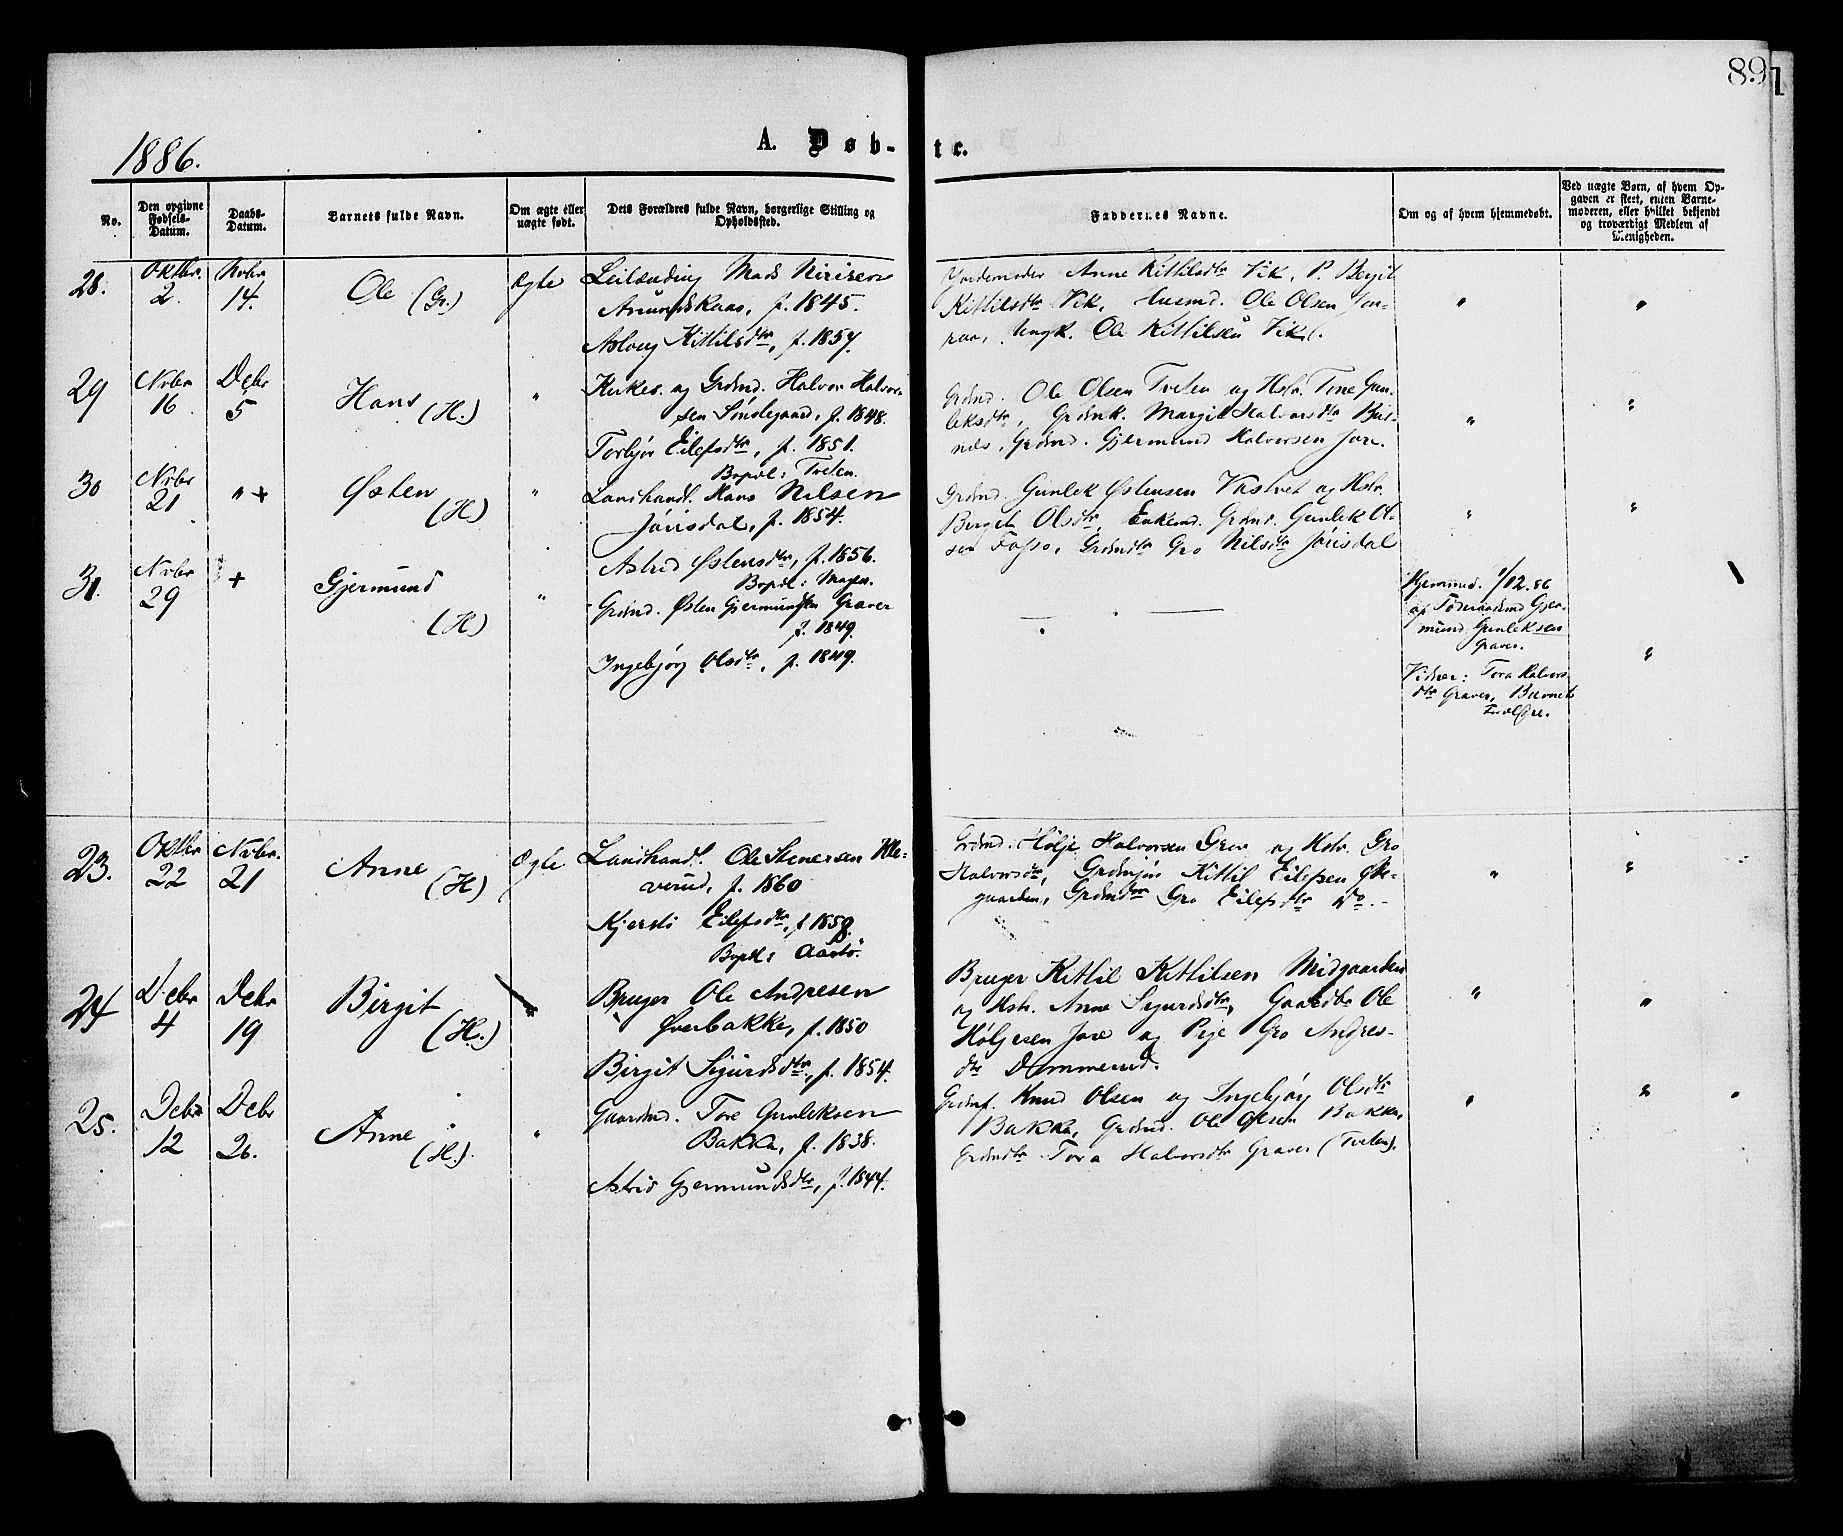 89
1886.
A. Døb-te.
No.
Den opgivne Fødsels-Datum.
Daabs-Datum.
Barnets fulde Navn.
Om ægte eller uægte født.
Dets Forældres fulde Navn, borgerlige Stilling og Opholdssted.
Faddernes Navne.
Om og af hvem hjemmedøbt.
Ved uægte Børn, af hvem Opgaven er skeet, enten Barnemoderen, eller hvilket bekjendt og troværdigt Medlem af Menigheden.
28. Oktbr. 2. Nvbr 14. Ole (Gr.) Ægte
Leilænding Mads
f. 1845.
Asloug Kittilsdtr, f. 1857.
Jordemoder Anne Kittilsdtr Vik, P. Bergit
Kittilsdtr Vik, Husmd. Ole Olsen
Ungk. Ole Kittilsen Vik.
" "
29 Nvbr 16 Debr 5 Hans (H.) "
Kirkes. og Grdmd. Halvor Halvor-
sen Søndegaard, f. 1848.
Torbjør Eilefsdtr, f. 1851.
Bopæl: Tveten.
Grdmd. Ole Olsen Tveten og Hstr. Tone Gun-
leksdtr, Grdmk. Margit Halvorsdtr Bus-
nes, Grdmd. Gjermund Halvorsen Jore.
" "
30 Nvbr 21 " + Østen (H.) "
Landhandl. Hans Nilsen
Jørisdal, f. 1854.
Astrid Østensdtr, f. 1856.
Bopæl: Mogen.
Grdmd. Gunlek Østensen Vastvet og Hstr.
Bergit Olsdtr, Enkemd. Grdmd. Gunlek Ol-
sen Fosso, Grdmdtr Gro Nilsdtr Jørisdal
" "
31. Nvbr 29 + Gjermund (H.) "
Grdmd. Østen Gjermundsen Graver
f. 1849.
Ingebjør Olsdtr, f. 1849.
Hjemmed. 1/12.86
af Føderaadsmd Gjer-
mund Gunleksen
Graver.
Vidner: Tora Halvors-
dtr Graver, Barnets
Forældre.
"
23. Oktbr 22 Nvbr. 21 Anne (H) Ægte
Landhandl. Ole Stenersen Kle-
verud, f. 1860
Kjersti Eilefsdtr, f 1858.
Bopæl:
Grdmd. Høljе Halvorsen Grov og Hstr. Gro
Halvorsdtr, Kittil Eilefsen
gaarden, Grdmdtr Gro Eilefsdtr do.
" "
24 Debr 4 Debr 19 Birgit (H.) "
Bruger Ole Andresen
Øverbakke, f. 1850
Birgit Sigurdsdtr, f. 1854.
Bruger Kittil Kittilsen Midgaarden
og Hstr. Anne Sigurdsdtr, Gaardbr Ole
Høljesen Jore og Pige Gro Andres-
dtr Dommerud.
" "
25. Debr 12 Debr 26. Anne (H.) "
Gaardmd. Tore Gunleksen
Bakka, f. 1838.
Astrid Gjermundsdtr, f. 1844.
Grdmf. Knud Olsen og Ingebjør Olsdtr
Bakka, Grdmd. Ole Olsen Bakka,
Grdmdtr Tora Halvorsdtr Graver (Tveten).
" "